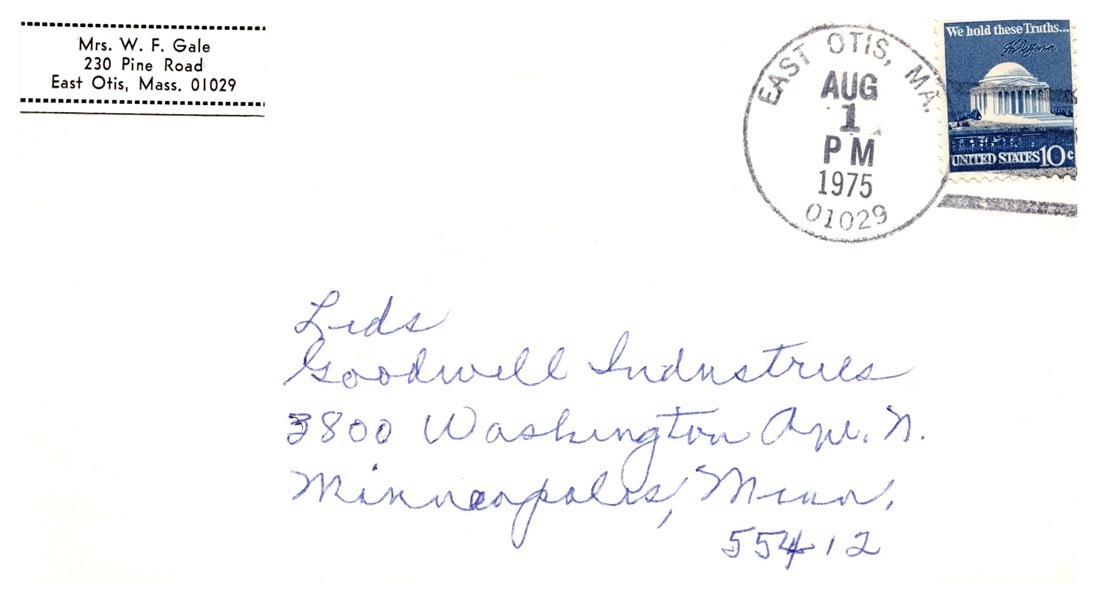 Mrs. W. F. Gale
230 Pine Road
East Otis, Mass. 01029
EAST OTIS, MA.
AUG
1
PM
1975
01029
We hold these Truths...
Th Jefferson
UNITED STATES 10c
Lids
Goodwill Industries
3800 Washington Ave. N.
Minneapolis, Minn.
55412